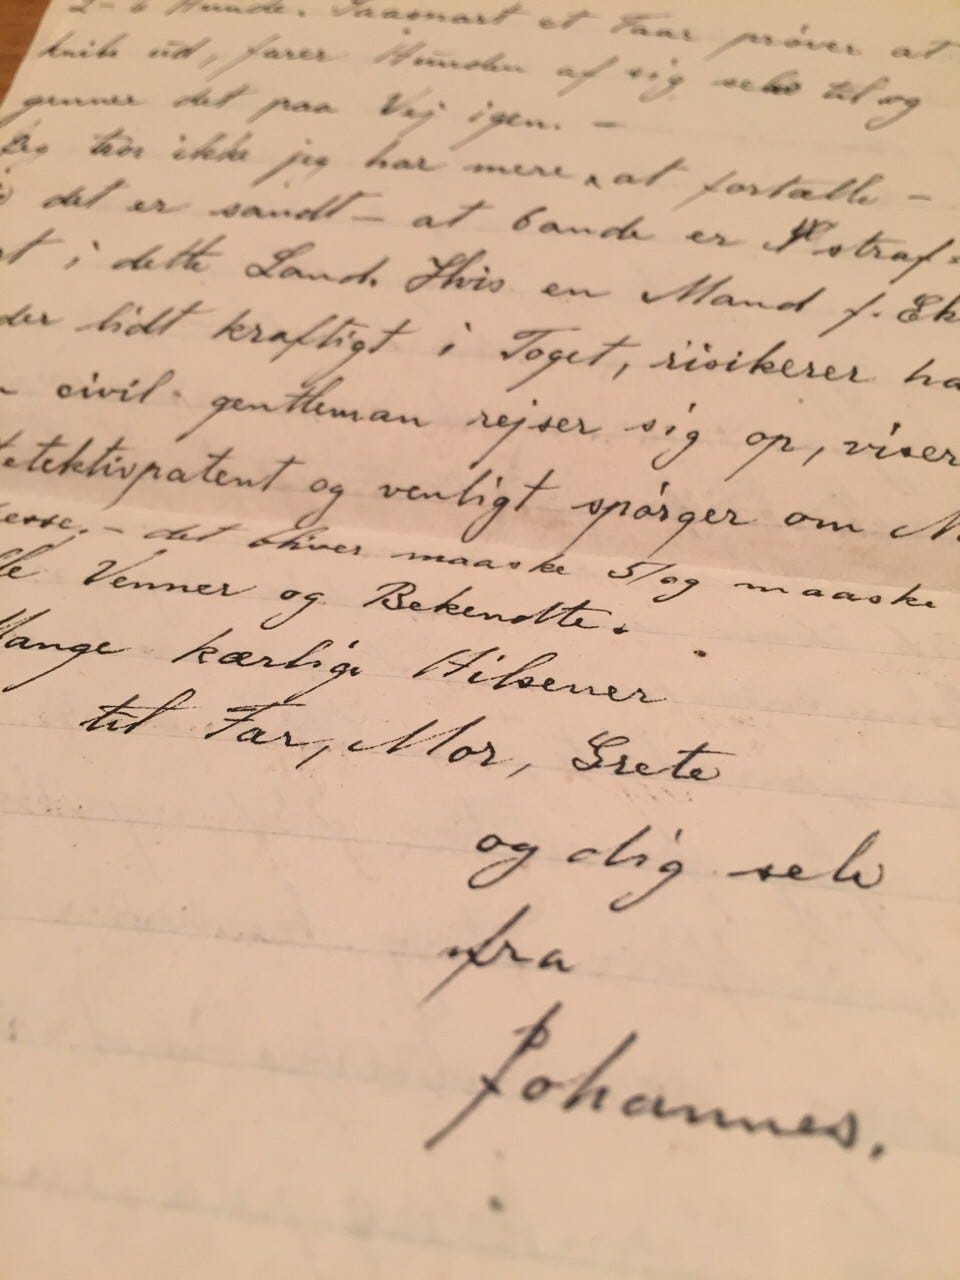 2-6 Hunde. Saasnart et Faar prøver at
knibe ud, farer Hunden af sig selv til og
genner det paa Vej igen. —
Jeg tror ikke jeg har mere at fortælle —
det er sandt — at bande er straf-
i dette Land. Hvis en Mand f. Eks
lidt kraftigt i Toget, risikerer ha
civil gentleman rejser sig op, viser
etektivpatent og venligt spørger om
esse. — det bliver maaske 5/ og maaske
Venner og Bekendte.
Mange kærlige Hilsener
til Far, Mor, Grete
og dig selv
fra
Johannes.